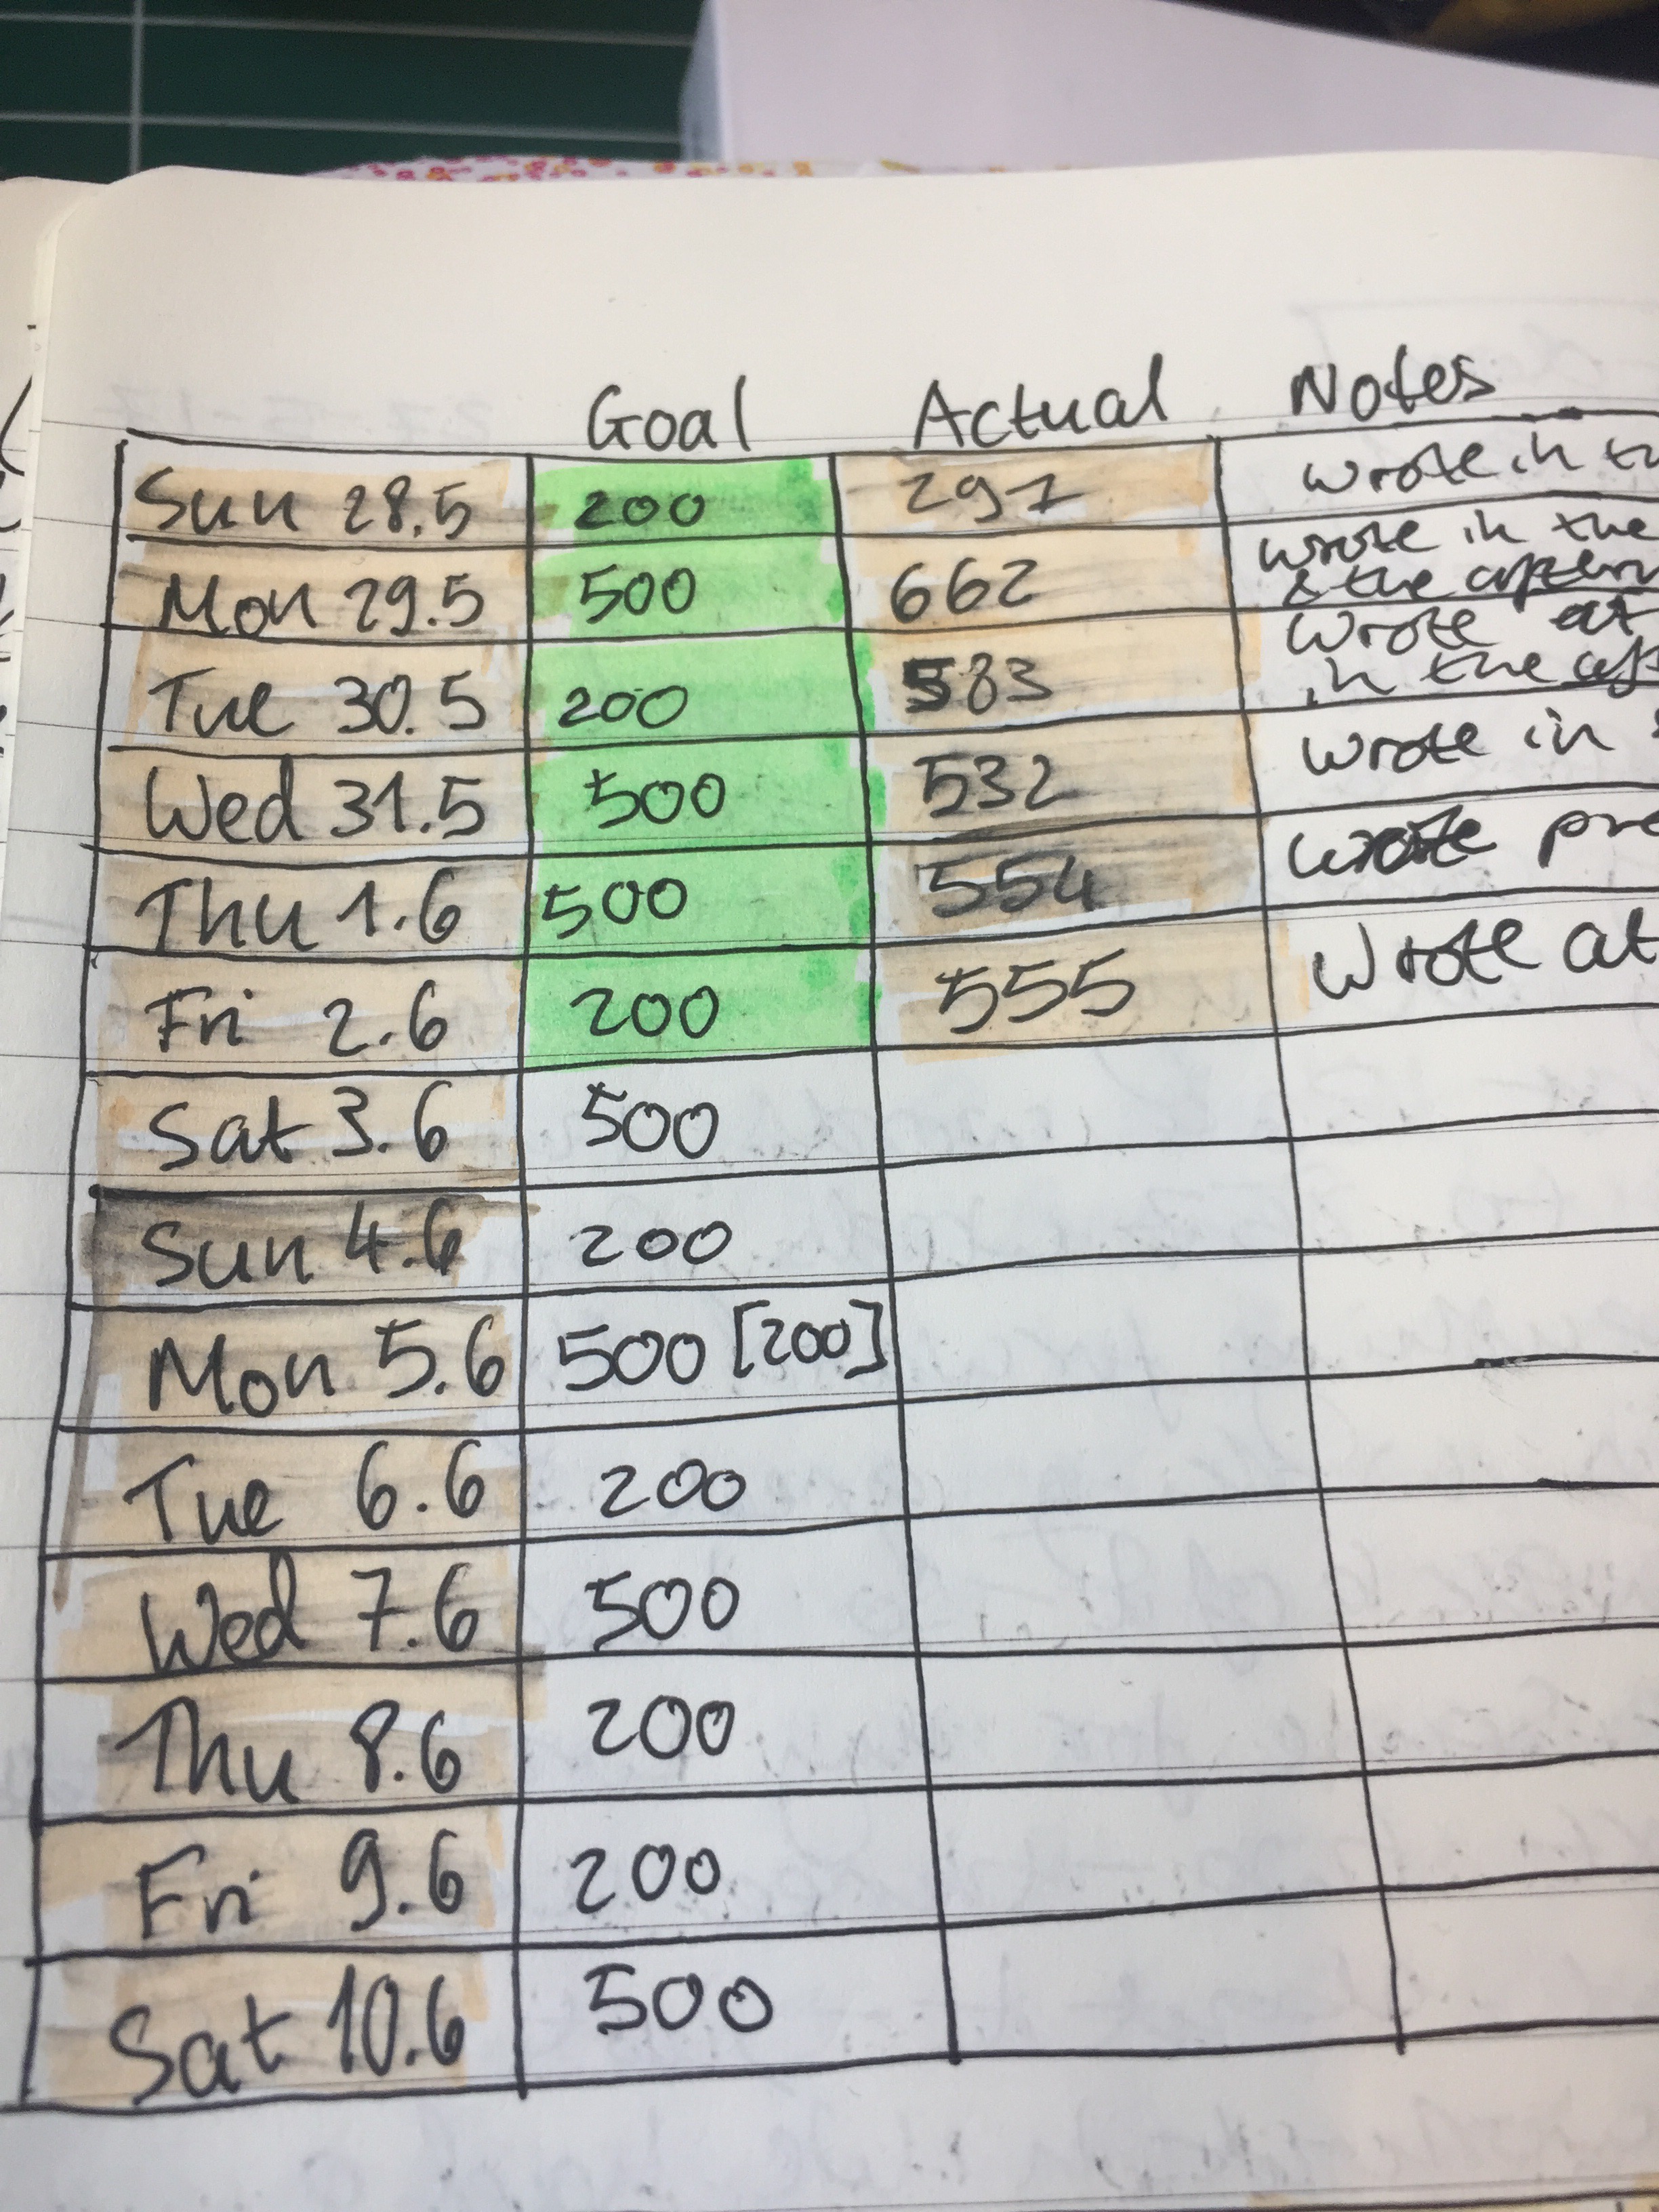 Goal Actual Notes
Sun 28.5 200 291 wrote in
Mon 29.5 500 662 wrote in the
& the
Tue 30.5 200 583 Wrote at
in the
Wed 31.5 500 532 wrote in
Thu 1.6 500 554 wrote
Fri 2.6 200 555 Wrote at
Sat 3.6 500
Sun 4.6 200
Mon 5.6 500 [200]
Tue 6.6 200
Wed 7.6 500
Thu 8.6 200
Fri 9.6 200
Sat 10.6 500